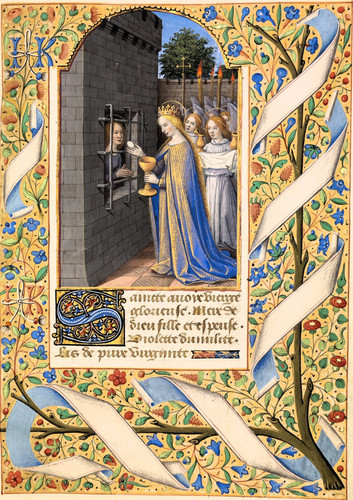 Sainctte avoye vierge
glorieuse. Mere de
dieu fille et espouse.
Violette dumilite
Lis de pure virginite